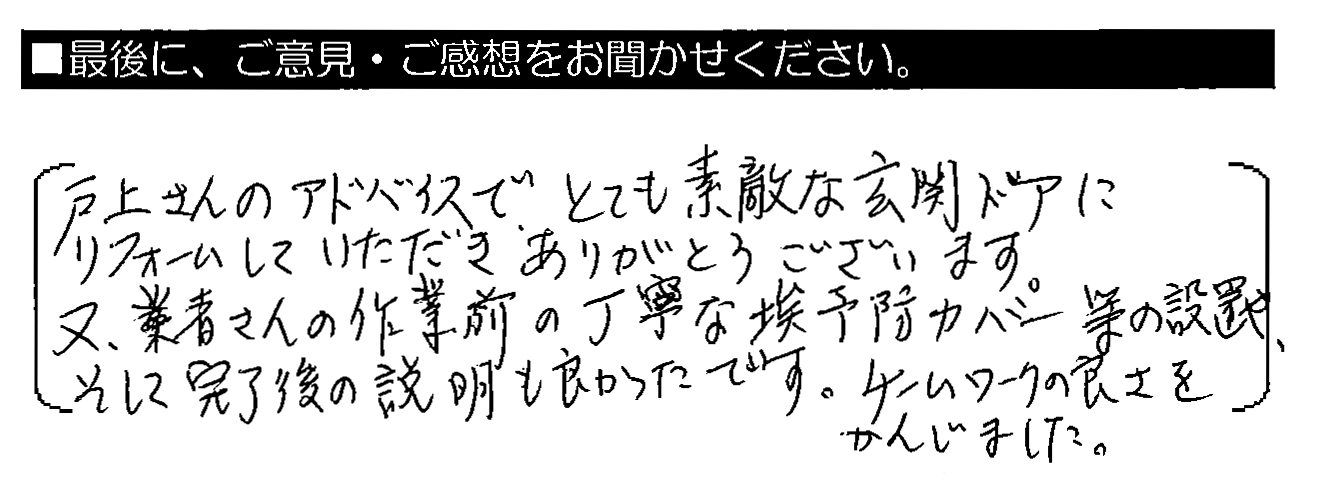 ■最後に、ご意見・ご感想をお聞かせください。
戸上さんのアドバイスで、とても素敵な玄関ドアに
リフォームしていただきありがとうございます。
又、業者さんの作業前の丁寧な埃予防カバー等の設置や、
そして完了後の説明も良かったです。チームワークの良さを
かんじました。